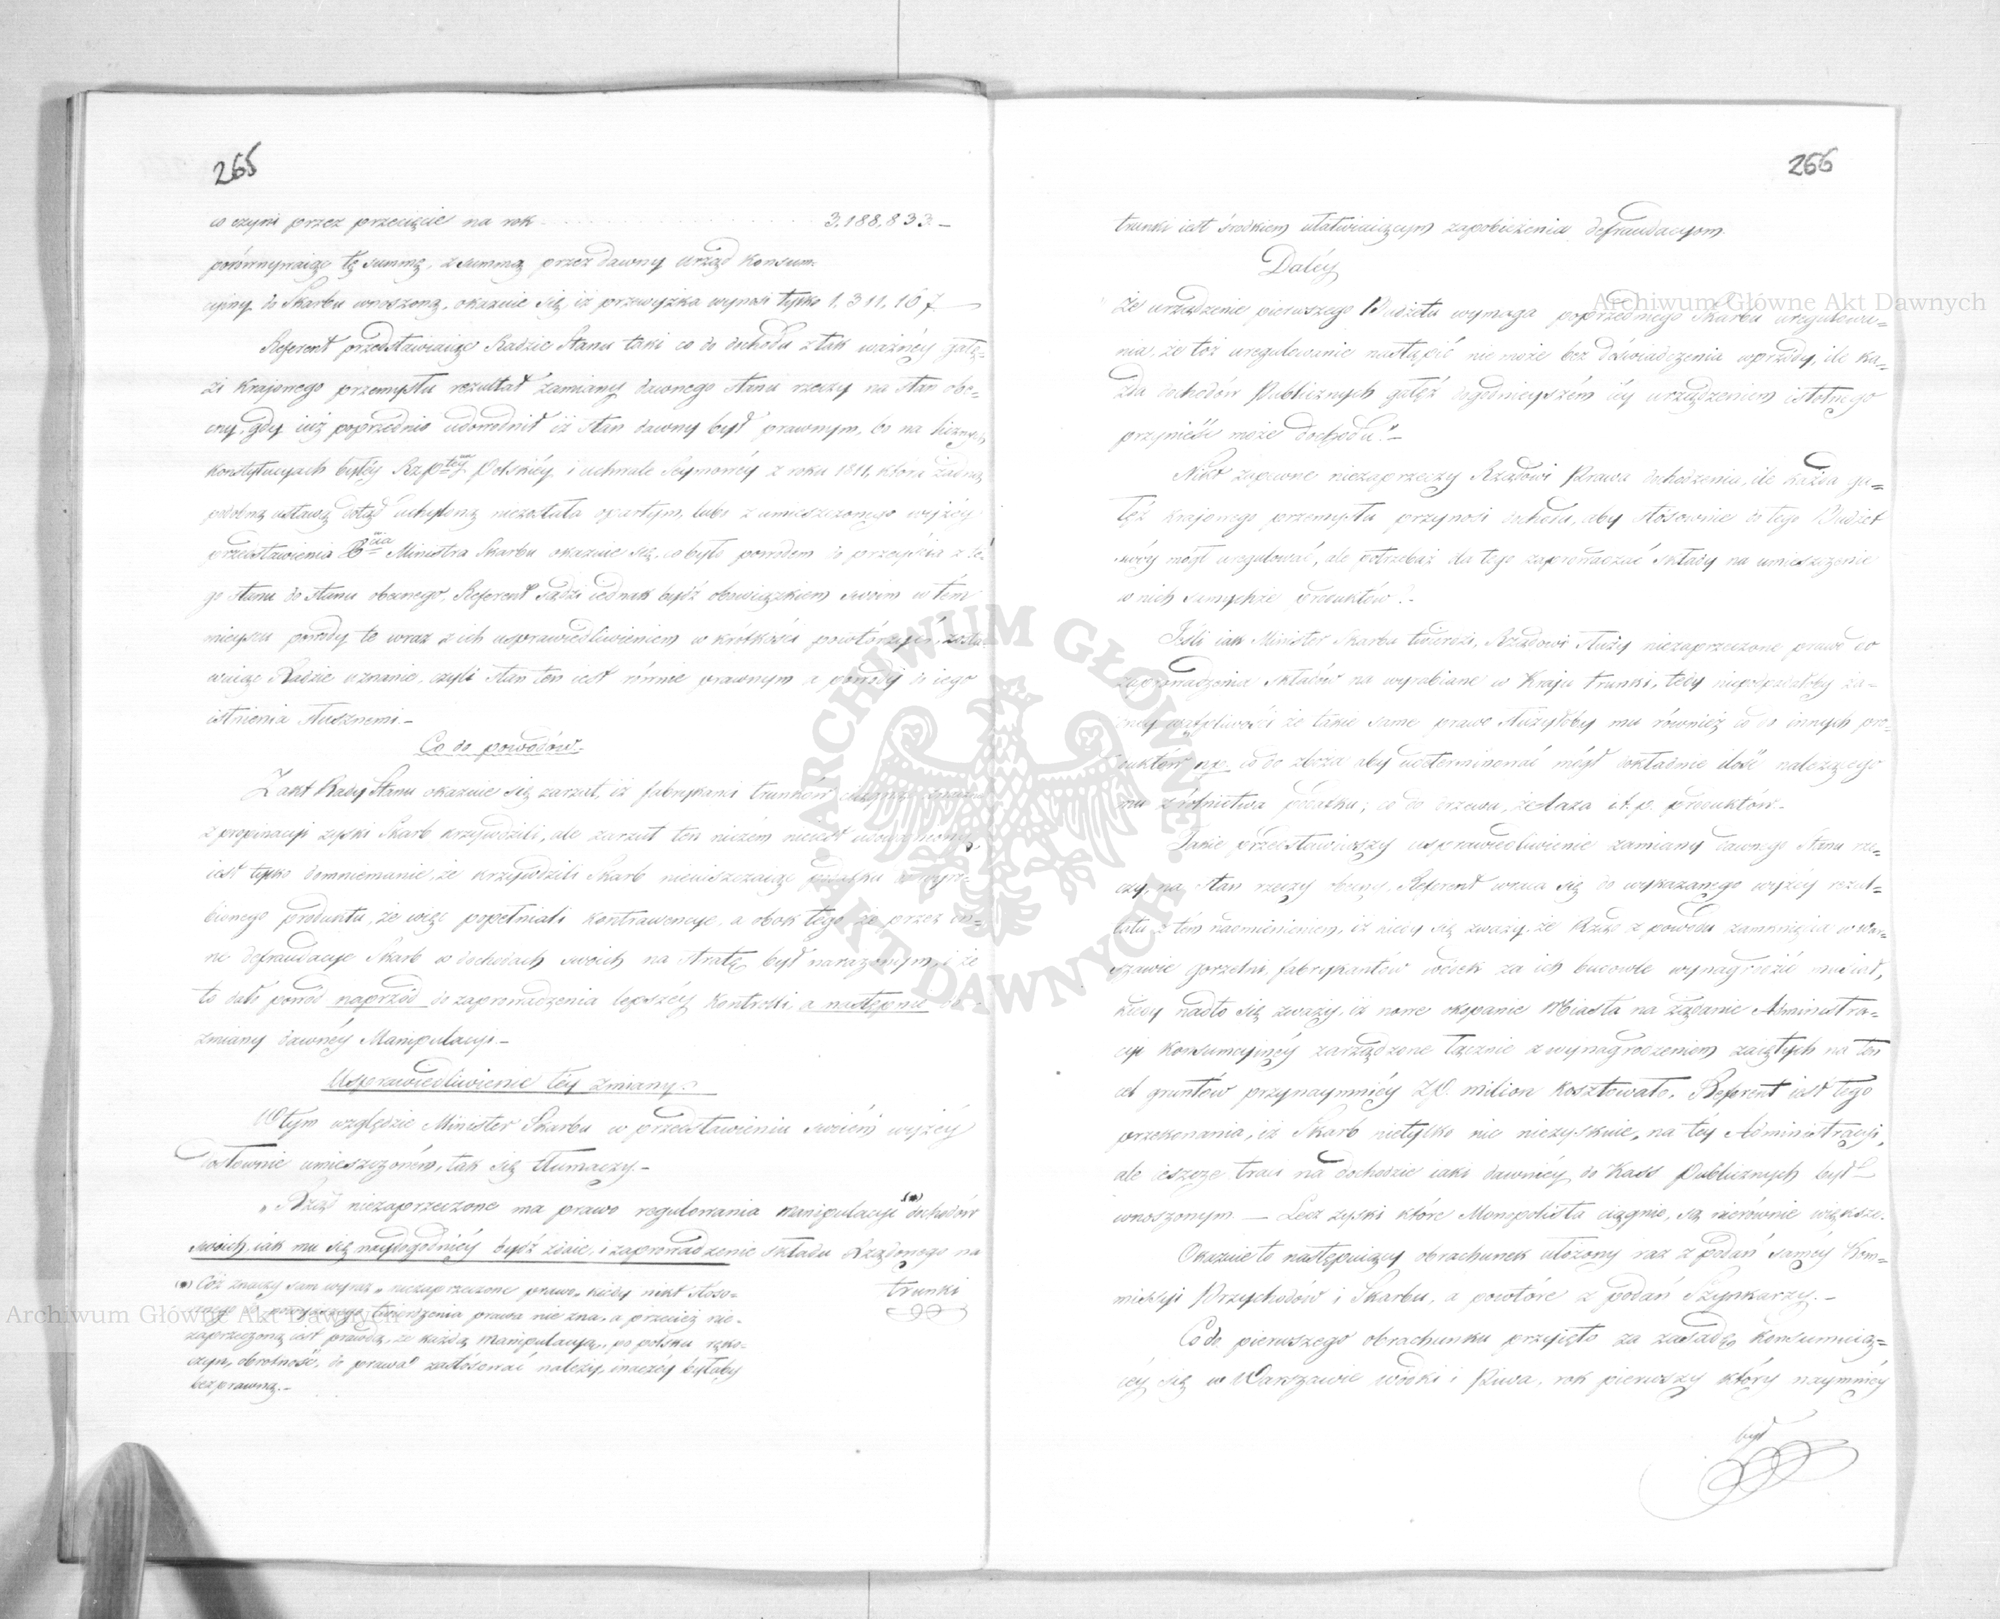 265
co czyni przez przecięcie na rok 3,188,833 –
porównywając tę summę, z summą przez dawny Urząd Konsum-
cyjny do Skarbu wnoszoną, okazuie się iż przewyżka wynosi tylko 1,311,167 –
Referent przedstawiaiąc Radzie Stanu taki co do dochodu z tak ważnéy gałę-
zi Kraiowego przemysłu rezultat zamiany dawnego Stanu rzeczy na Stan obe-
cny, gdy iuż poprzednio udowodnił iż Stan dawny był prawnym, bo na licznych
Konstytucyach byłéy Rzptey Polskiéy i uchwale Seymowéy z roku 1811, która żadną
podobną ustawą dotąd uchyloną niezostała opartym, lubo z umieszczonego wyżéy
przedstawienia Ministra Skarbu okazuie się, co było powodem do przeyścia z te-
go Stanu do Stanu obecnego, Referent sądzi iednak bydź obowiązkiem swoim w tém
mieyscu powody te wraz z ich usprawiedliwieniem w krótkości powtórzyć,
Radzie uznanie, czyli Stan ten iest równie prawnym a powody do iego
istnienia słusznemi –
Co do powodów.
Z akt Rady Stanu okazuie się zarzut, iż fabrykanci trunków ciągnąc
z propinacyi zyski Skarb krzywdzili, ale zarzut ten niczém nieiest udowodniony,
iest tylko domniemanie, że krzywdzili Skarb nieuiszczaiąc podatku od wyro-
bionego produktu, że więc popełniali kontrawencye, a obok tego że przez in-
ne defraudacye Skarb w dochodach swoich na stratę był narażonym, i że
to dało powód naprzód do zaprowadzenia lepszéy Kontrolli, a następnie do
zmiany dawnéy Manipulacyi –
Usprawiedliwienie téy zmiany.
W tym względzie Minister Skarbu w przedstawieniu swoiém wyżéy
dosłownie umieszczoném, tak się tłumaczy. –
„Rząd niezaprzeczone ma prawo regulowania manipulacyi (*) dochodów
swoich, iak mu się naydogodniéy bydź zdaie, i zaprowadzenie składu Rządowego na
trunki
(*) Cóż znaczy sam wyraz „niezaprzeczone prawo„ kiedy nikt stoso-
wnego do powyższego twierdzenia prawa nie zna, a przecież nie-
zaprzeczoną iest prawdą, że każdą manipulacyą, po polsku ręko-
czyn, obrotność, do prawa zastósować należy, inaczéy byłaby
bezprawną. –
266
trunki iest środkiem ułatwiaiącym zapobieżenia defraudacyom.
Daléy
„Że urządzenie pierwszego Budżetu wymaga poprzedniego Skarbu uregulowa-
nia, że toż uregulowanie nastąpić nie może bez doświadczenia wprzódy, ile ka-
żda dochodów Publicznych gałęź dogodnieyszém iéy urządzeniem istotnego
przynieść może dochodu.” –
Nikt zapewne niezaprzeczy Rządowi Prawa dochodzenia, ile każda ga-
łęź kraiowego przemysłu przynosi dochodu, aby stósownie do tego Budżet
swóy mógł uregulować, ale potrzebaż dla tego zaprowadzać składy na umieszczenie
w nich samychże produktów? –
Jeśli iak Minister Skarbu twierdzi, Rządowi służy niezaprzeczone prawo do
zaprowadzenia składów na wyrabiane w Kraju trunki, tedy niepodpadałoby ża-
dnéy wątpliwości że takie same prawo służyłoby mu również co do innych pro-
duktów np. co do zboża aby udeterminować mógł dokładnie ilość należącego
mu z rolnictwa podatku; co do kruszcu, żelaza i t. p. produktów. –
Takie przedstawiwszy usprawiedliwienie zamiany dawnego Stanu rze-
czy, na stan rzeczy obecny, Referent wraca się do wykazanego wyżéy rezul-
tatu z tém nadmienieniem, iż kiedy się zważy, że Rząd z powodu zamknięcia w War-
szawie gorzelni, fabrykantów wódek za ich budowle wynagrodzić musiał,
kiedy nadto się zważy, iż nowe okopanie Miasta na żądanie Administra-
cyi Konsumcyinéy zarządzone łącznie z wynagrodzeniem zaiętych na ten
cel gruntów przynaymniéy Zł. milion kosztowało, Referent iest tego
przekonania, iż Skarb nietylko nic niezyskuie, na téy Administracyi,
ale ieszcze traci na dochodzie iaki dawniéy do Kass Publicznych był
wnoszonym. – Lecz zyski które Monopolista ciągnie, są nierównie większe.
Okazuie to następuiący obrachunek ułożony raz z podań saméy Kom-
missyi Przychodów i Skarbu, a powtóre z podań Szynkarzy. –
Co do pierwszego obrachunku przyięto za zasadę, konsumuią-
céy się w Warszawie wódki i Piwa, rok pierwszy który naymniéy
był
Archiwum Główne Akt Dawnych
Archiwum Główne Akt Dawnych
ARCHIWUM GŁÓWNE AKT DAWNYCH